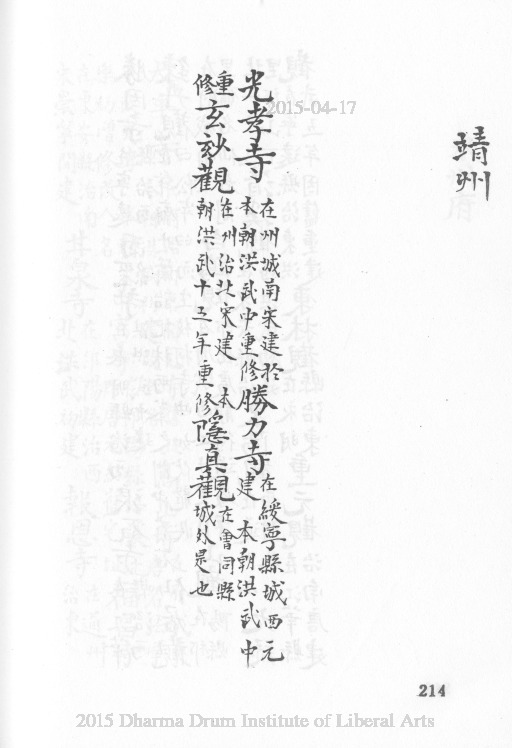 靖州
光孝寺 在州城南宋建於本朝洪武中重修 勝力寺 在綏寧縣城西元建 本朝洪武中
重修 玄玅觀 在州治北宋建 本朝洪武十五年重修 隱真觀 在會同縣城外是也
2015-04-17
214
2015 Dharma Drum Institute of Liberal Arts